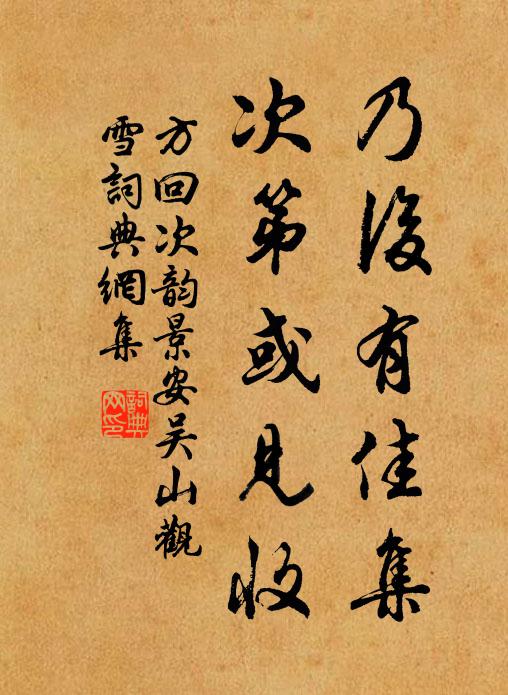 乃後有佳集
次第或見收
方回次韵景安吴山觀
雪詞典網集
詞典
网印